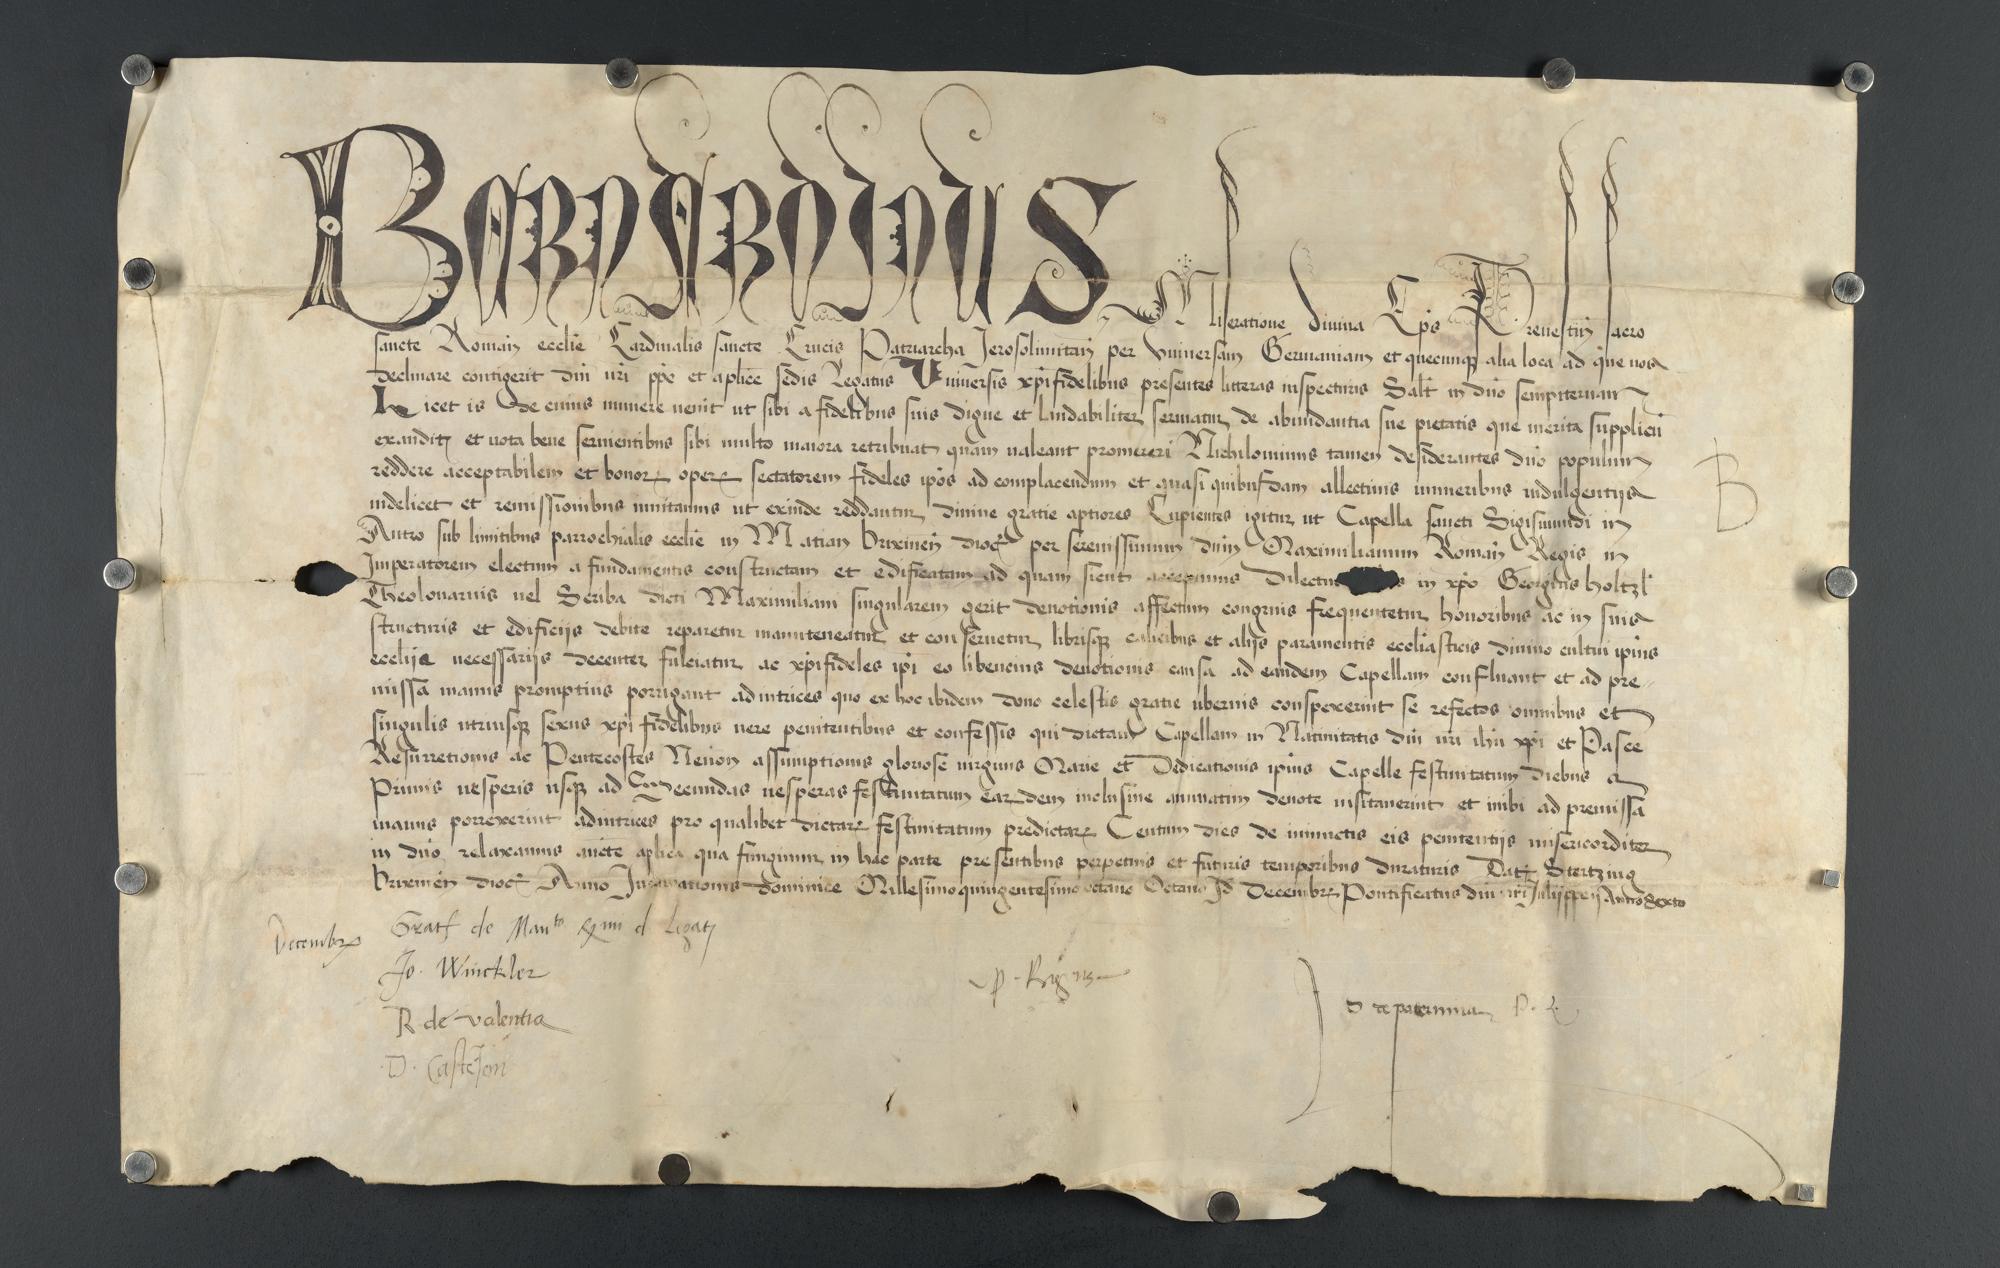 BERNARDINUS Miseratione divina Ep̄s Prenestin̄ sacro
sancte Roman̄ ecclīe Cardinalis sancte Crucis Patriarcha Jerosolimitan̄ per Vniuersam Germaniam et quecunq̄ alia loca ad que nos
declinare contigerit dn̄i nr̄i pp̄e et aplīce sedis Legatus Vniuersis xp̄ifidelibus presentes litteras inspecturis Salt̄ in dn̄o sempiternam
Licet is de cuius munere uenit ut sibi a fidelibus suis digne et laudabiliter seruiatur de abundantia sue pietatis que merita supplicū
excedit et uota bene seruientibus sibi multo maiora retribuat quam ualeant promereri Nichilominus tamen desiderantes dn̄o populum
reddere acceptabilem et bonor̄ oper̄ sectatorem fideles ip̄os ad complacendum et quasi quibusdam allectiuis muneribus indulgentijs
uidelicet et remissionibus inuitamus ut exinde reddantur diuine gratie aptiores Cupientes igitur ut Capella sancti Sigismundi in
Antro sub limitibus parrochialis ecclīe in Matian brixinen̄ dioc̄ per serenissimum dn̄m Maximilianum Roman̄ Regis in
Imperatorem electum a fundamentis constructam et edificatam ad quam sicut accepimus Dilectus in xp̄o Georgius holtzl
Theolonarius uel Scriba dicti Maximiliani singularem gerit deuotionis affectum congruis frequentetur honoribus ac in suis
structuris et edificijs debite reparetur manuteneatur et conseruetur librisq̄ calicibus et alijs paramentis eccliasticis diuino cultui ipīus
ecclīe necessarijs decenter fulciatur ac xp̄ifideles ip̄i eo libencius deuotionis causa ad eandem Capellam confluant et ad pre
missa manus promptius porrigant adiutrices quo ex hoc ibidem dono celestis gratie uberius conspexerint se refectos omnibus et
singulis utriusq̄ sexus xp̄i fidelibus uere penitentibus et confessis qui dictam Capellam in Natiuitatis dn̄i nr̄i ihū xp̄i et Pasce
Resurretionis ac Pentecostes Necnon assumptionis gloriose uirginis Marie et Dedicationis ipīus Capelle festiuitatum diebus a
Primis uesperis usq̄ ad Secundas uesperas festiuitatum earūdem inclusiue annuatim deuote uisitauerint et inibi ad premissa
manus porrexerint adiutrices pro qualibet dictar̄ festiuitatum predictar̄ Centum dies de iniunctis eis penitentijs misericorditer
in dn̄o relaxamus aucte aplīca qua fungimur in hac parte presentibus perpetuis et futuris temporibus duraturis Dat̄ Stertzing
brixinen̄ dioc̄ Anno Incarnationis dominice Millesimoquingentesimooctauo Octauo Id Decembr̄ Pontificatus dn̄i nr̄i Julij pp̄e ij Anno Sexto
B
Decembr̄
Grat̄ de Man^to R^mi d legati
Jo. Winckler
R de Valentia
D. Castejon
D de paternina